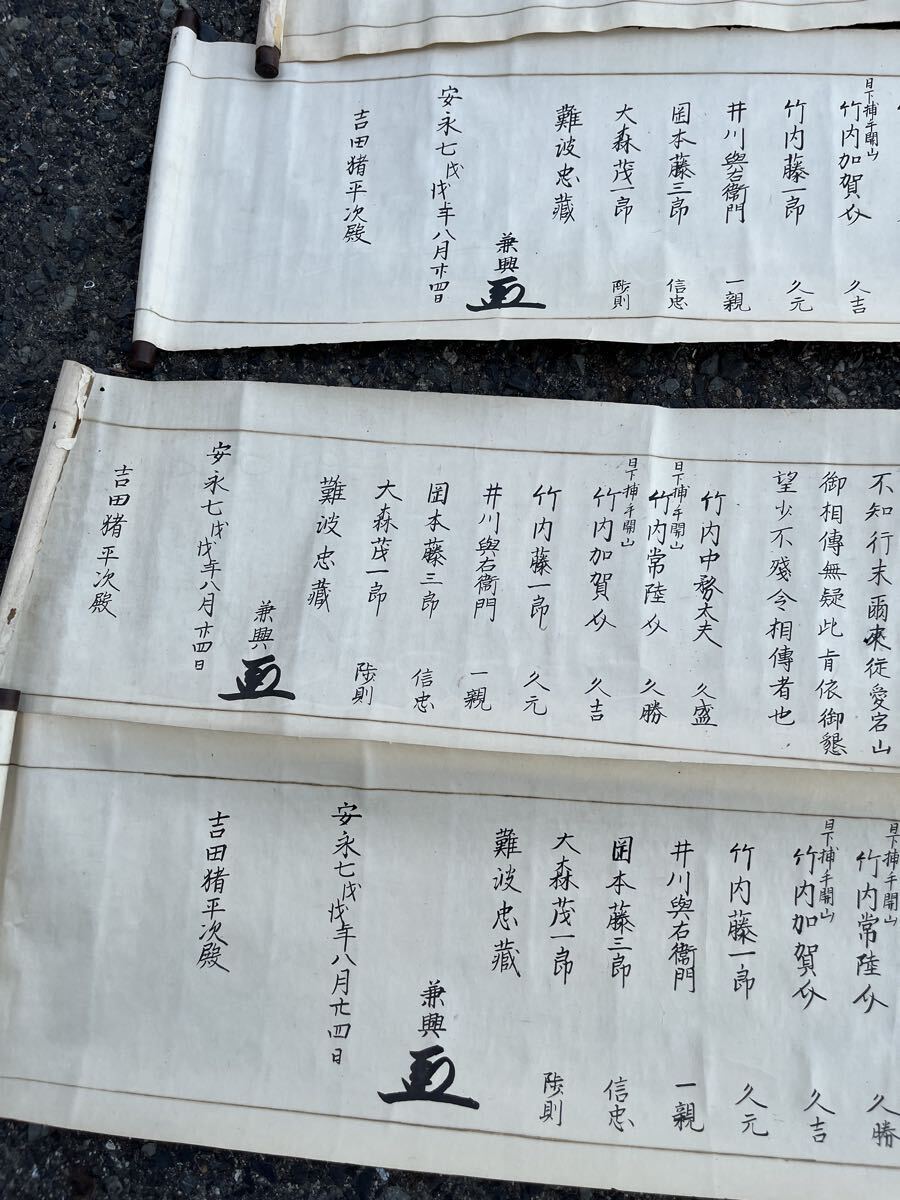 日下捕手開山
竹内加賀介 久吉
竹内藤一郎 久元
井川與右衛門 一親
岡本藤三郎 信忠
大森茂一郎 陟則
難波忠藏
兼興
安永七戊戌年八月廿四日
吉田猪平次殿
不知行末爾來従愛宕山
御相傳無疑此肯依御懇
望少不残令相傳者也
竹内中務太夫 久盛
日下捕手開山
竹内常陸介 久勝
日下捕手開山
竹内加賀介 久吉
竹内藤一郎 久元
井川與右衛門 一親
岡本藤三郎 信忠
大森茂一郎 陟則
難波忠藏
兼興
安永七戊戌年八月廿四日
吉田猪平次殿
日下捕手開山
竹内常陸介 久勝
日下捕手開山
竹内加賀介 久吉
竹内藤一郎 久元
井川與右衛門 一親
岡本藤三郎 信忠
大森茂一郎 陟則
難波忠藏
兼興
安永七戊戌年八月廿四日
吉田猪平次殿